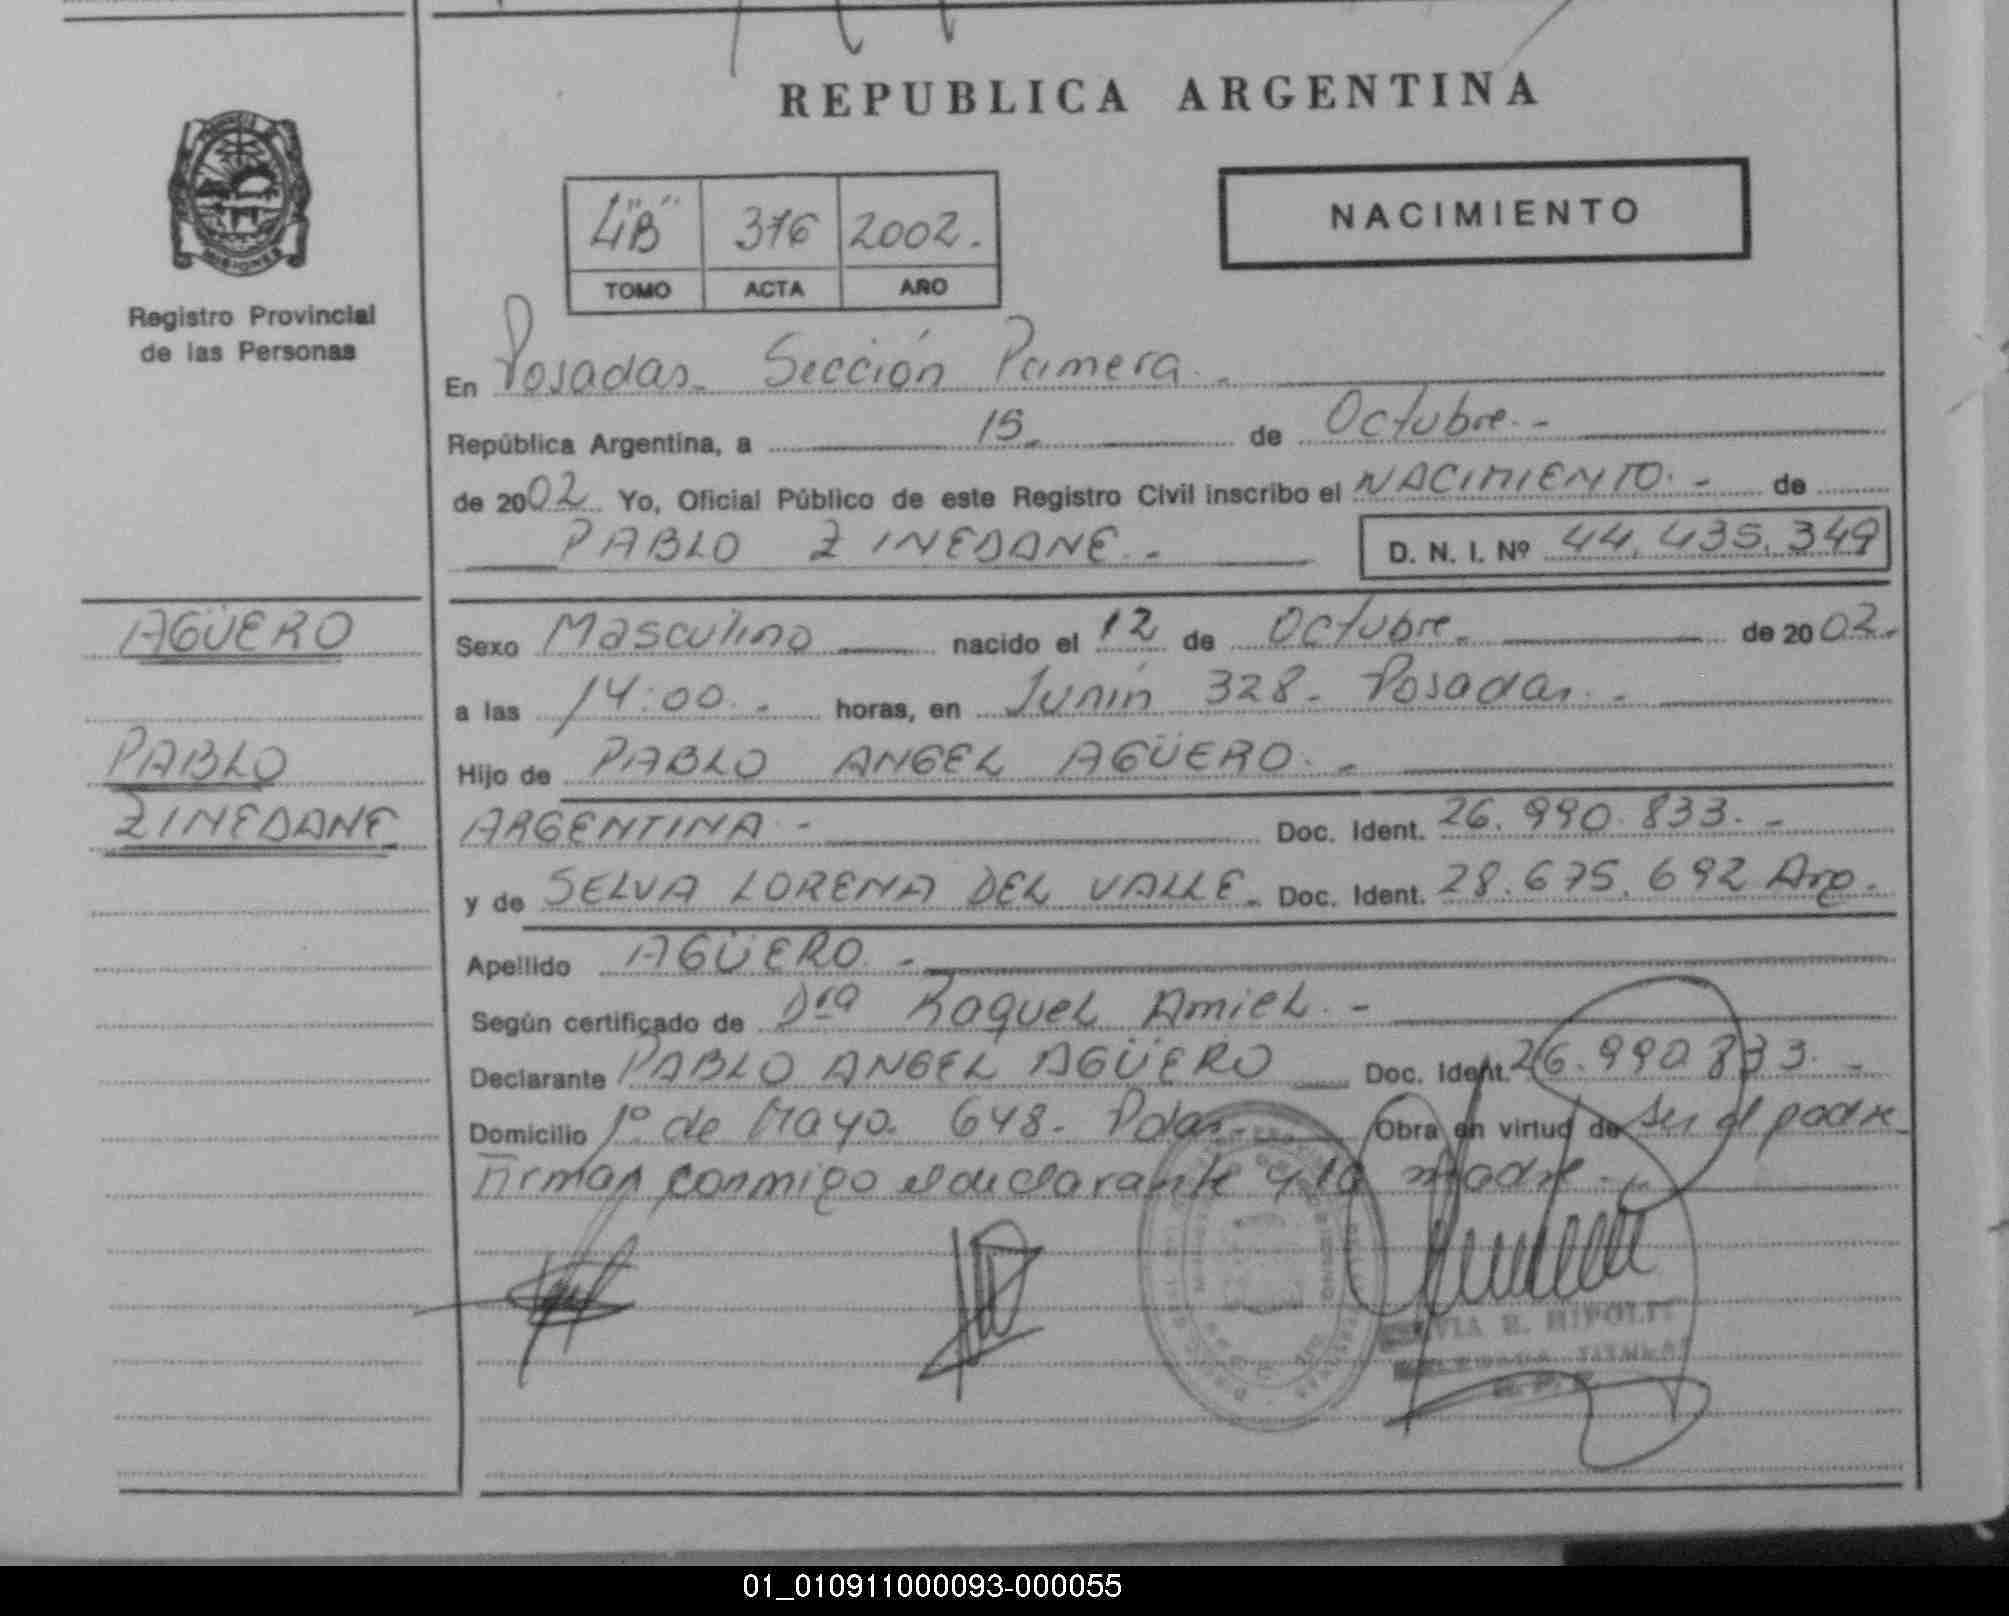 REPUBLICA ARGENTINA
MISIONES
Registro Provincial
de las Personas
4"B" 316 2002.
TOMO ACTA AÑO
NACIMIENTO
En Posadas. Sección Primera.-
República Argentina, a 15. de Octubre.-
de 2002. Yo, Oficial Público de este Registro Civil inscribo el NACIMIENTO.- de
PABLO ZINEDANE.- D. N. I. Nº 44.435.349
AGÜERO
PABLO
ZINEDANE
Sexo Masculino nacido el 12 de Octubre. de 2002.
a las 14:00.- horas, en Junín 328. Posadas.-
Hijo de PABLO ANGEL AGÜERO.-
ARGENTINA.- Doc. Ident. 26.990.833.-
y de SELVA LORENA DEL VALLE. Doc. Ident. 28.675.692 Arg.
Apellido AGÜERO.-
Según certificado de Dra Raquel Amiel.-
Declarante PABLO ANGEL AGÜERO Doc. Ident. 26.990.833.-
Domicilio 1º de Mayo. 648. Pdas.- Obra en virtud de ser el padre.
Firman conmigo el declarante y la madre.-
R. HIPOLIT
TITULAR
01_010911000093-000055